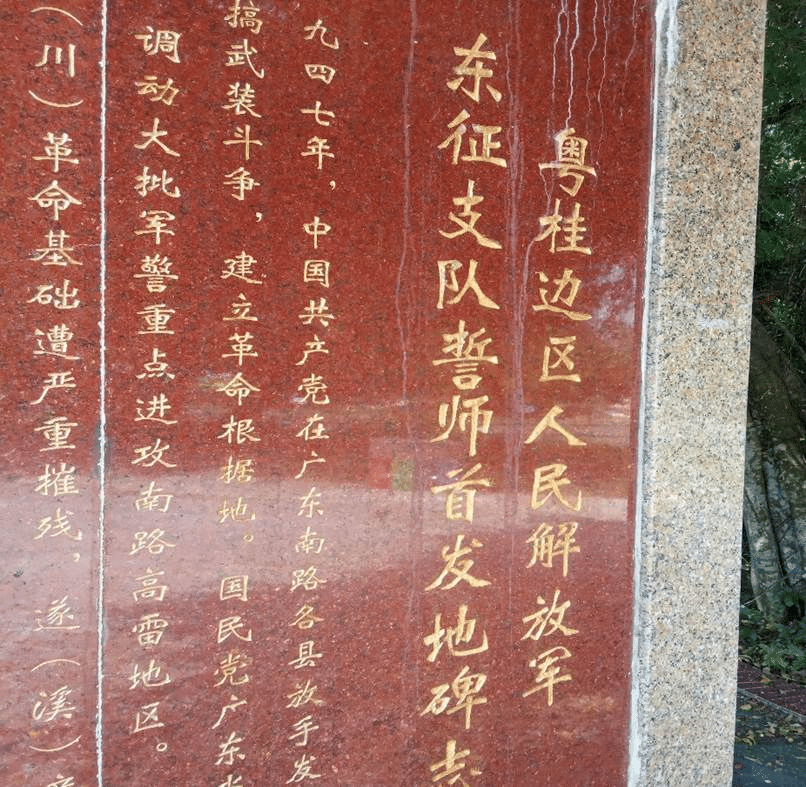 粤桂边区人民解放军
东征支队誓师首发地碑志
九四七年，中国共产党在广东南路各县放手发
搞武装斗争，建立革命根据地。国民党广东当
调动大批军警重点进攻南路高雷地区。
（川）革命基础遭严重摧残，遂（溪）